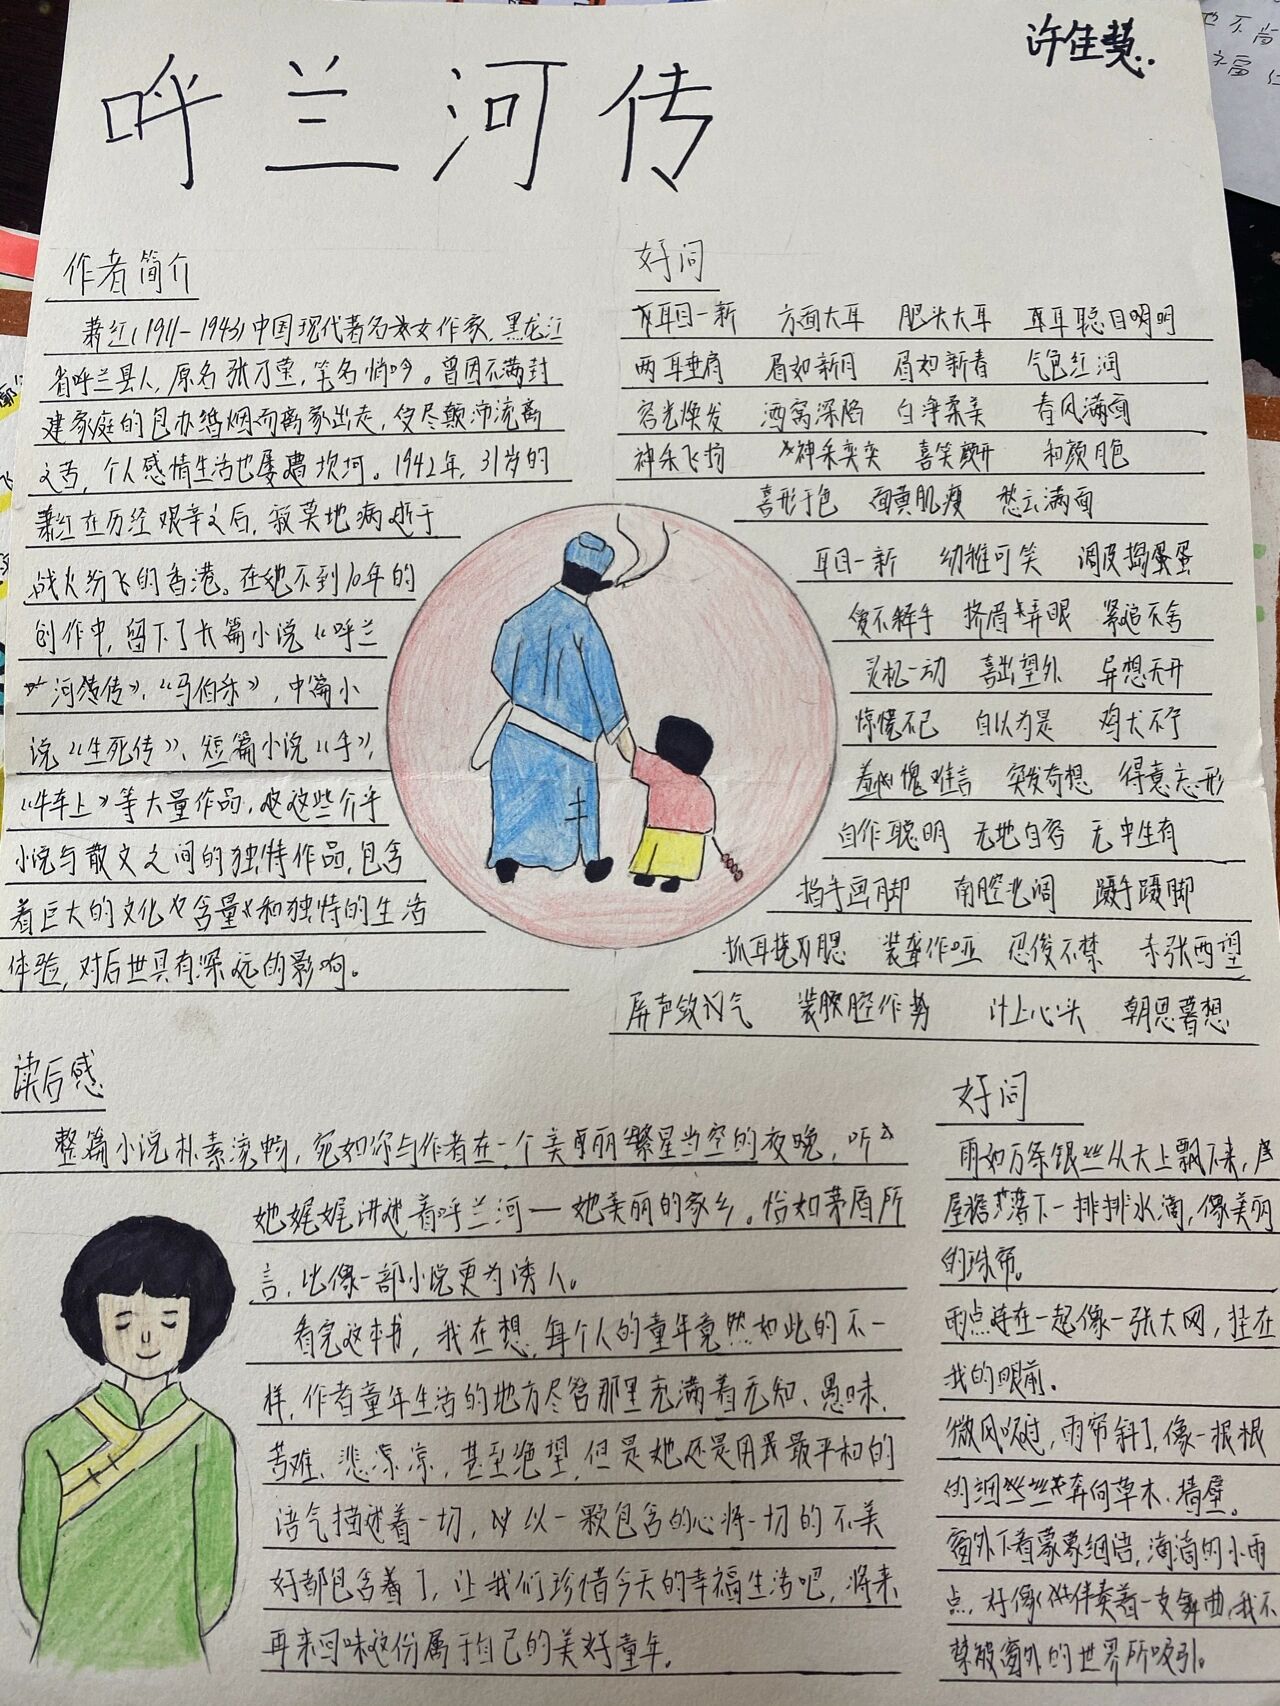 许佳慧
呼兰河传
作者简介
萧红(1911-1943)中国现代著名女作家,黑龙江
省呼兰县人,原名张乃莹,笔名悄吟。曾因不满封
建家庭的包办婚烟而离家出走,受尽颠沛流离
之苦,个人感情生活也屡遭坎坷。1942年,31岁的
萧红在历经艰辛之后,寂莫地病逝于
战火纷飞的香港。在她不到10年的
创作中,留下了长篇小说《呼兰
河传》、《马伯乐》,中篇小
说《生死传》、短篇小说《手》,
《牛车上》等大量作品,这些介乎
小说与散文之间的独特作品,包含
着巨大的文化含量和独特的生活
体验,对后世具有深远的影响。
好词
耳目一新 方面大耳 肥头大耳 耳聪目明
两耳垂肩 眉如新月 眉如新春 气色红润
容光焕发 酒窝深陷 白净柔美 春风满面
神采飞扬 神采奕奕 喜笑颜开 和颜悦色
喜形于色 面黄肌瘦 愁云满面
耳目一新 幼稚可笑 调皮捣蛋
爱不释手 挤眉弄眼 紧追不舍
灵机一动 喜出望外 异想天开
惊慌不已 自以为是 鸡犬不宁
羞愧难言 突发奇想 得意忘形
自作聪明 无地自容 无中生有
指手画脚 南腔北调 蹑手蹑脚
抓耳挠腮 装聋作哑 忍俊不禁 东张西望
屏声敛气 装腔作势 计上心头 朝思暮想
读后感
整篇小说朴素流畅,宛如你与作者在一个美丽繁星当空的夜晚,听
她娓娓讲述着呼兰河一她美丽的家乡。恰如茅盾所
言,比像一部小说更为诱人。
看完这本书,我在想,每个人的童年竟然如此的不一
样,作者童年生活的地方尽管那里充满着无知、愚昧、
苦难、悲凉,甚至绝望,但是她还是用最平和的
语气描述着一切,以一颗包含的心将一切的不美
好都包含着了,让我们珍惜今天的幸福生活吧,将来
再来回味这份属于自己的美好童年。
好词
雨如万条银丝从天上飘下来,
屋檐落下一排排水滴,像美丽
的珠帘。
雨点连在一起像一张大网,挂在
我的眼前。
微风吹过,雨帘斜了,像一根根
的细丝奔向草木、墙壁。
窗外下着蒙蒙细语,滴滴的小雨
点,好像伴奏着一支舞曲,我不
禁被窗外的世界所吸引。